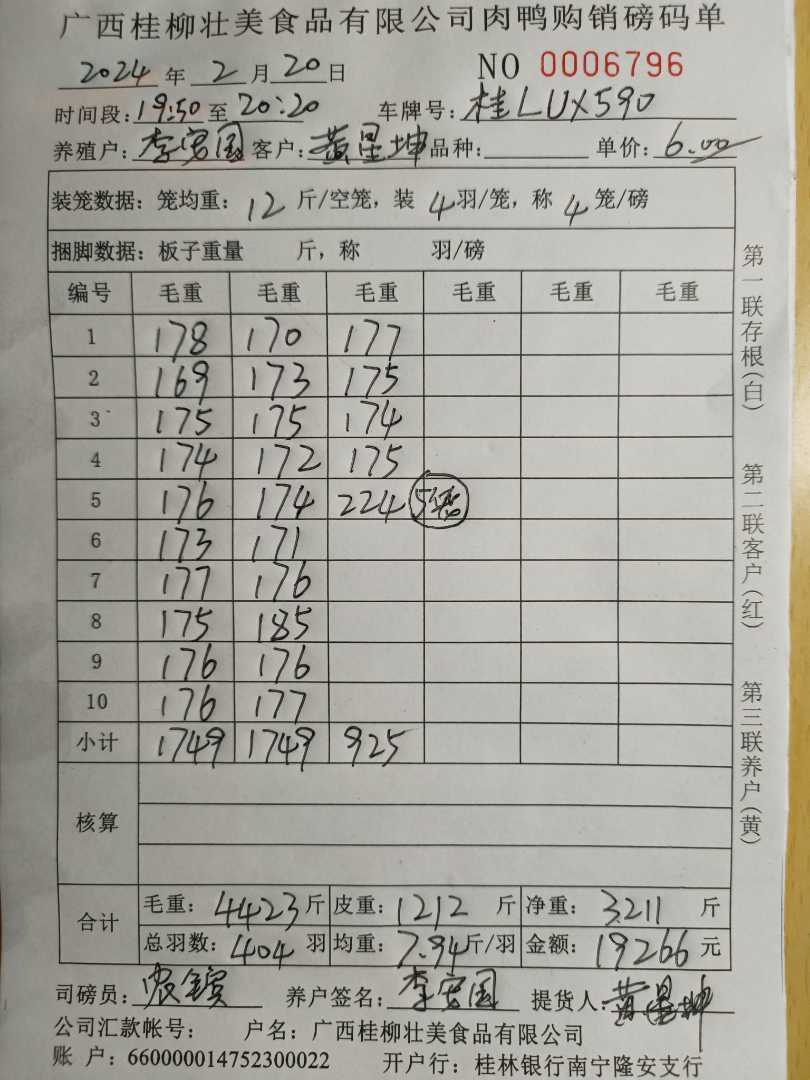 广西桂柳壮美食品有限公司肉鸭购销磅码单
2024年2月20日 NO 0006796
时间段:19:50至20:20 车牌号:桂LUX590
养殖户:李宏国 客户:黄星坤 品种: 单价:6.00
装笼数据：笼均重：12斤/空笼，装4羽/笼，称4笼/磅
捆脚数据：板子重量 斤，称 羽/磅
编号 毛重 毛重 毛重 毛重 毛重 毛重
1 178 170 177
2 169 173 175
3 175 175 174
4 174 172 175
5 176 174 224 5笼
6 173 171
7 177 176
8 175 185
9 176 176
10 176 177
小计 1749 1749 925
核算
合计
毛重：4423斤 皮重：1212斤 净重：3211斤
总羽数：404羽 均重：7.94斤/羽 金额：19266元
司磅员: 养户签名:李宏国 提货人:黄星坤
公司汇款帐号： 户名：广西桂柳壮美食品有限公司
账 户：660000014752300022 开户行：桂林银行南宁隆安支行
第一联存根(白)
第二联客户(红)
第三联养户(黄)